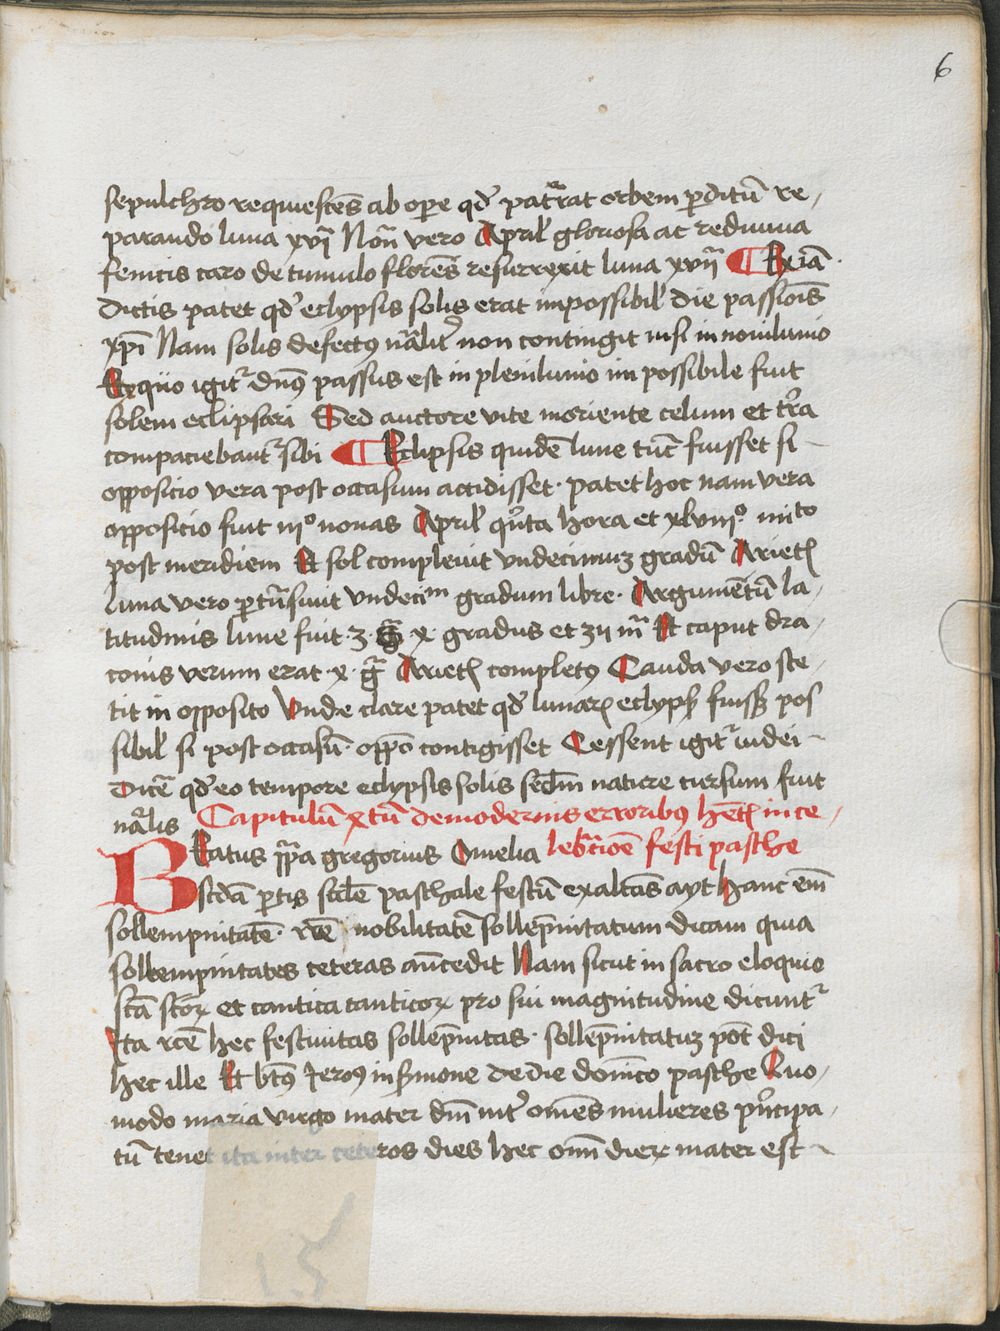 6
sepulchro requiescēs ab oꝑe qď patͬrat orbem ꝑditū re-
parando luna xvj Noñ vero April̕ gloriosa ac rediuiua
fenicis caro de tumulo florēs resurrexit luna xvij ¶ Ex iā
dictis patet qď eclypsis solis erat impossibil̕ die passiōīs
xp̄i Nam solis defectꝰ nāliť non contingit nisi in nouilunio
Ex quo igiť dn̄s passus est in plenilunio impossibile fuit
solem eclipsari Sed auctore vite moriente celum et tr̄a
compaciebant᷑ sibi ¶ Eclipsis quidē lune tūc fuisset si
opposicio vera post occasum accidisset · patet hoc nam vera
opposicio fuit iiiº nonas April̕ qͥnta hora et xlviiiº miᵗᵒ
post meridiem Et sol compleuit vndecimuʒ gradū Arietꝭ
luna vero ꝑtn̄siuit vndeciᵐ gradum libre · Argumētū la-
titudinis lune fuit · 3 · x · gradus et 3ij m̄ Et caput dra-
conis verum erat · x · gͣ Arietꝭ completꝰ Cauda vero ste-
tit in opposito Vnde clare patet qď lunarꝭ eclypsꝭ fuissꝫ pos
sibil̕ si post occasū · opp̄o contigisset Cessent igiť iudei
Dicē qď eo tempore eclypsis solis scd̄m nature cursum fuit
nāl̕is Capitulū xtū de modernis erroribꝰ hētꝭ in ce-
BEatus pp̄a gregorius Omelia leb̄cōē festi pasche
scd̄a ꝑtis scd̄e paschale festū exaltās ayt hanc em̄
sollempnitatē · rc̄e nobilitatē sollēpnitatum dicam quia
sollempnitates ceteras an̄cedit Nam sicut in sacro eloquio
scā scōꝝ et cantica canticoꝝ pro sui magnitudine dicunt᷑
Ita rc̄e hec festiuitas sollēpnitas · sollēpnitatuʒ pōt dici
hec ille Et bt̄ꝰ Ieroꝰ in ẜmone de die dōnico pasche Quo-
modo maria virgo mater dn̄i int̕ om̄es mulieres pͥncipa-
tū tenet ita inter ceteros dies hec om̄ dierꝝ mater est
15